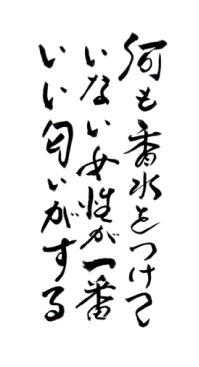 何も香水をつけて
いない女性が一番
いい匂いがする